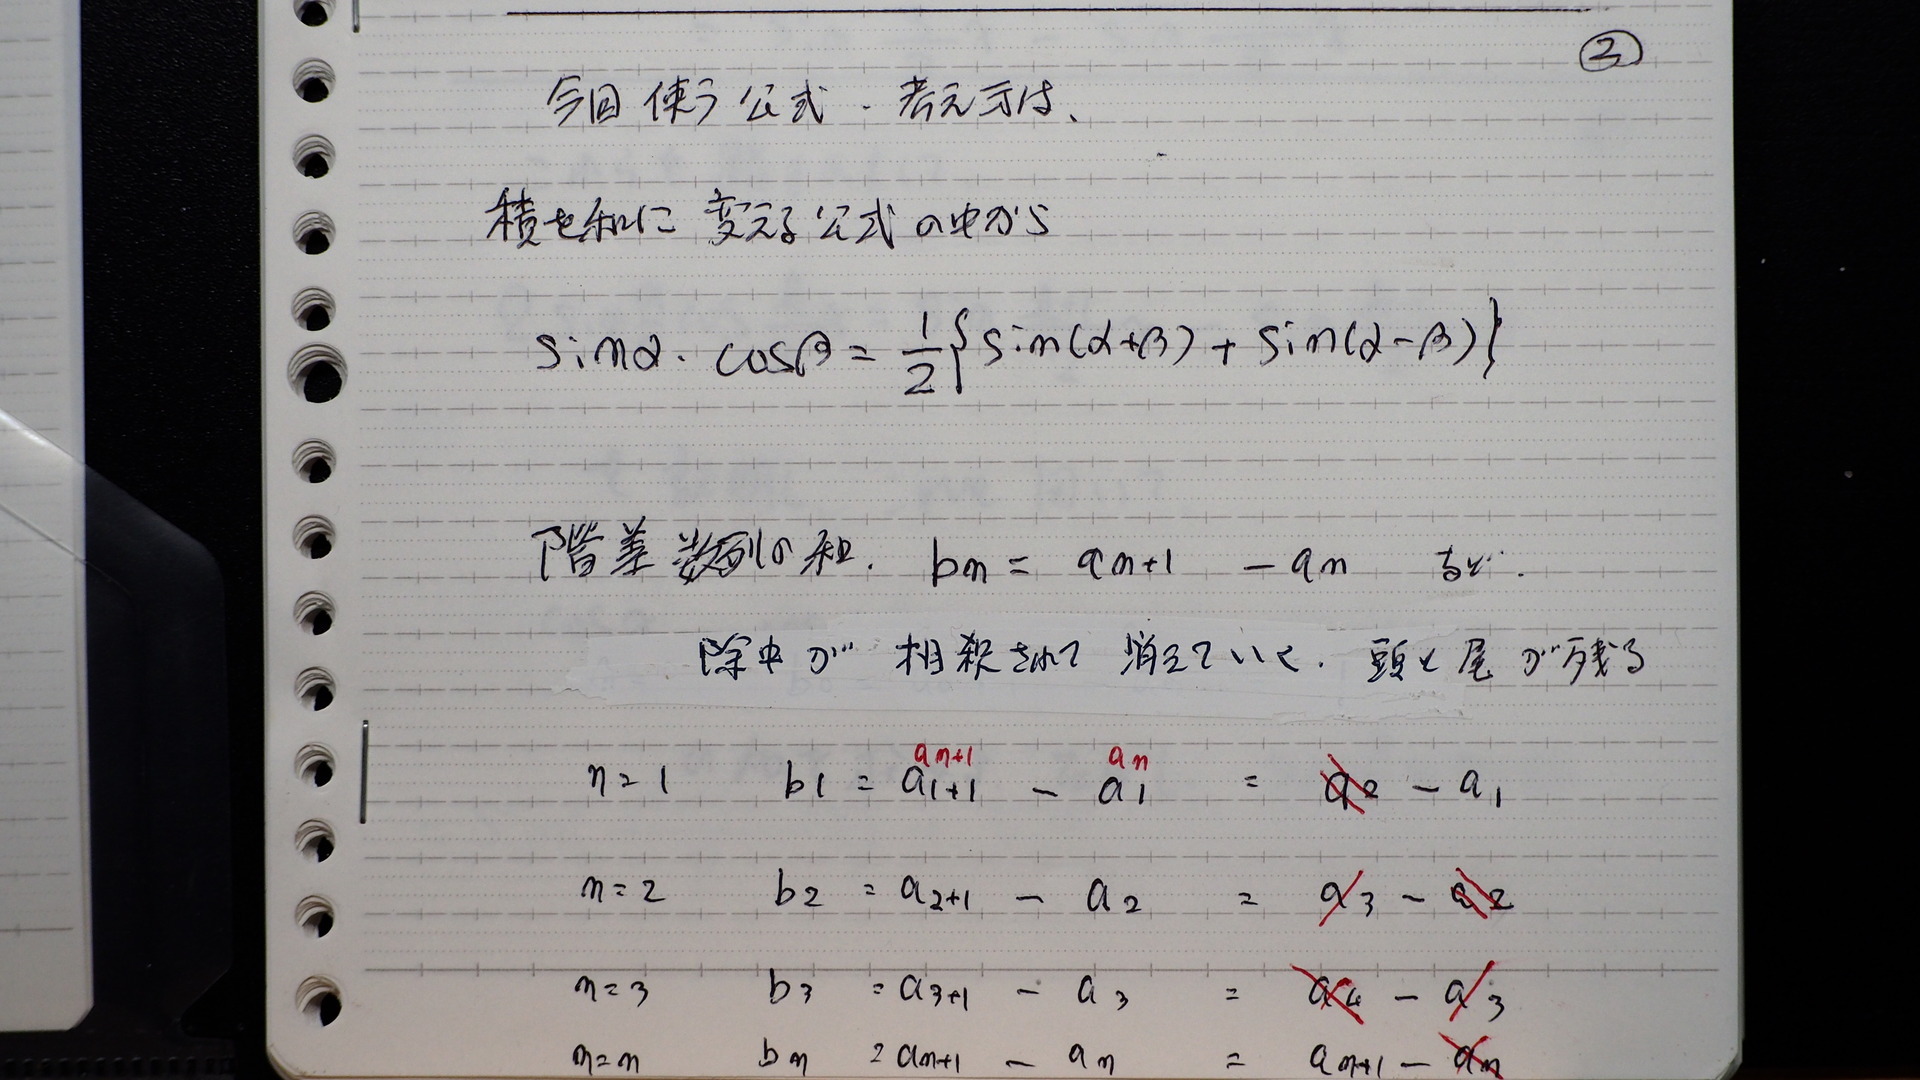 ②
今回使う公式・考え方は、
積を和に変える公式の中から
sinα・cosβ = 1/2{sin(α+β) + sin(α-β)}
階差数列の和. bn = an+1 - an など.
途中が相殺されて消えていく. 頭と尾が残る
an+1 an
n=1 b1 = a1+1 - a1 = a2 - a1
n=2 b2 = a2+1 - a2 = a3 - a2
n=3 b3 = a3+1 - a3 = a4 - a3
n=n bn = an+1 - an = an+1 - an